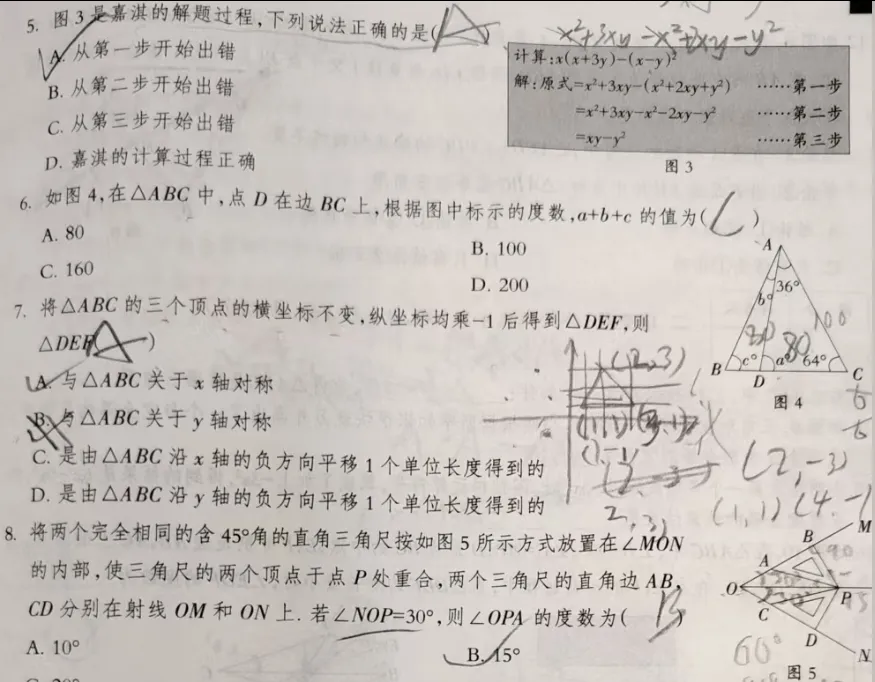 5. 图3是嘉淇的解题过程,下列说法正确的是( A )
A. 从第一步开始出错
B. 从第二步开始出错
C. 从第三步开始出错
D. 嘉淇的计算过程正确
x²+3xy-x²+2xy-y²
计算:x(x+3y)-(x-y)²
解:原式=x²+3xy-(x²+2xy+y²) ……第一步
=x²+3xy-x²-2xy-y² ……第二步
=xy-y² ……第三步
图3
6. 如图4,在△ABC中,点D在边BC上,根据图中标示的度数,a+b+c的值为( C )
A. 80
B. 100
C. 160
D. 200
A
36°
b°
100
30
80
B
c°
a°
64°
C
D
图4
7. 将△ABC的三个顶点的横坐标不变,纵坐标均乘-1后得到△DEF,则
△DEF( A )
A. 与△ABC关于x轴对称
B. 与△ABC关于y轴对称
C. 是由△ABC沿x轴的负方向平移1个单位长度得到的
D. 是由△ABC沿y轴的负方向平移1个单位长度得到的
(2,3)
(1,1)
(2,-3)
(1,1) (4,-1
8. 将两个完全相同的含45°角的直角三角尺按如图5所示方式放置在∠MON
的内部,使三角尺的两个顶点于点P处重合,两个三角尺的直角边AB,
CD分别在射线OM和ON上. 若∠NOP=30°,则∠OPA的度数为( B )
A. 10°
B. 15°
M
B
90
A
O
P
C
D
N
60°
图5